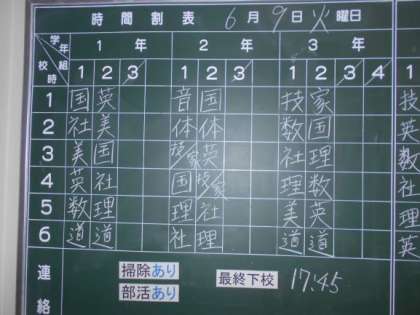 時間割表 6月9日火曜日
学年 組 校時 1年 2年 3年
1 2 3 1 2 3 1 2 3 4
1 国 英 音 国 技 家 技
2 社 美 体 体 数 国 英
3 美 国 技/家 英 社 理 数
4 英 社 国 技/家 理 数 社
5 数 理 理 社 美 英 理
6 道 道 社 理 道 道 英
連絡
掃除あり 最終下校 17:45
部活あり